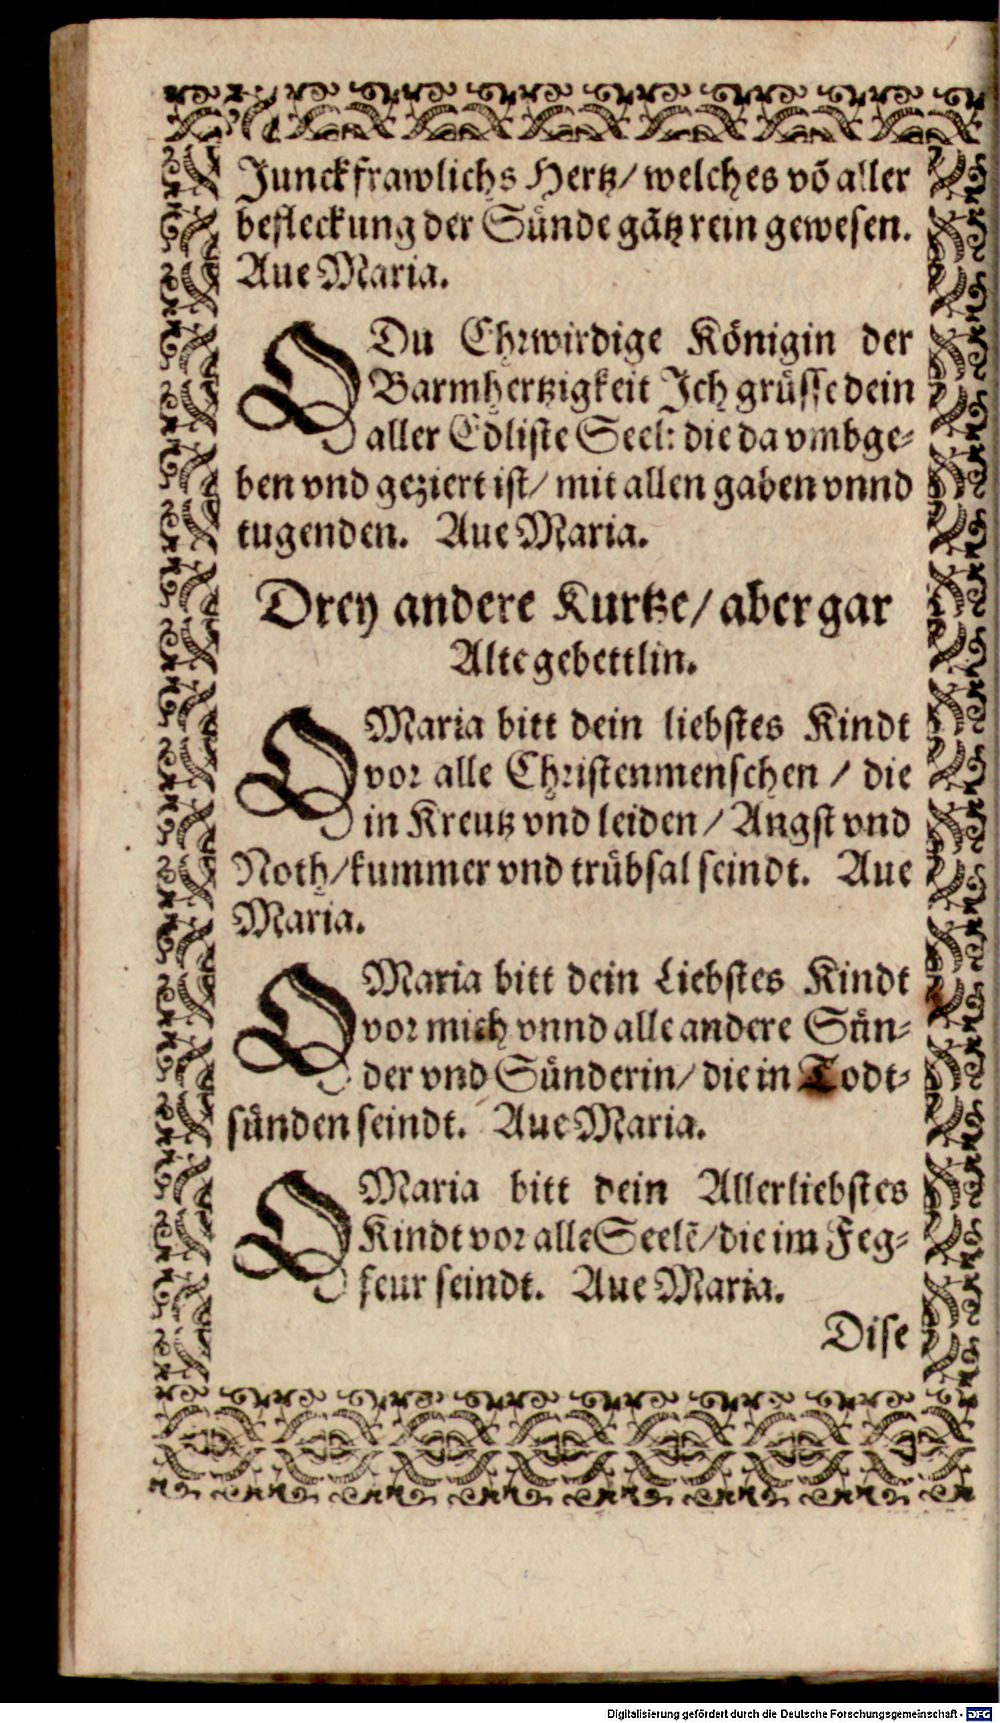 Junckfrawlichs Hertz/ welches võ aller
befleckung der Sünde gãtz rein gewesen.
Aue Maria.
O Du Ehrwirdige Königin der
Barmhertzigkeit Ich grüsse dein
aller Edliste Seel: die da vmbge-
ben vnd geziert ist/ mit allen gaben vnnd
tugenden. Aue Maria.
Drey andere Kurtze/ aber gar
Alte gebettlin.
O Maria bitt dein liebstes Kindt
vor alle Christenmenschen / die
in Kreutz vnd leiden/ Angst vnd
Noth/ kummer vnd trübsal seindt. Aue
Maria.
O Maria bitt dein Liebstes Kindt
vor mich vnnd alle andere Sün-
der vnd Sünderin/ die in Todt-
sünden seindt. Aue Maria.
O Maria bitt dein Allerliebstes
Kindt vor alle Seelẽ/ die im Feg-
feur seindt. Aue Maria.
Dise
Digitalisierung gefördert durch die Deutsche Forschungsgemeinschaft - DFG